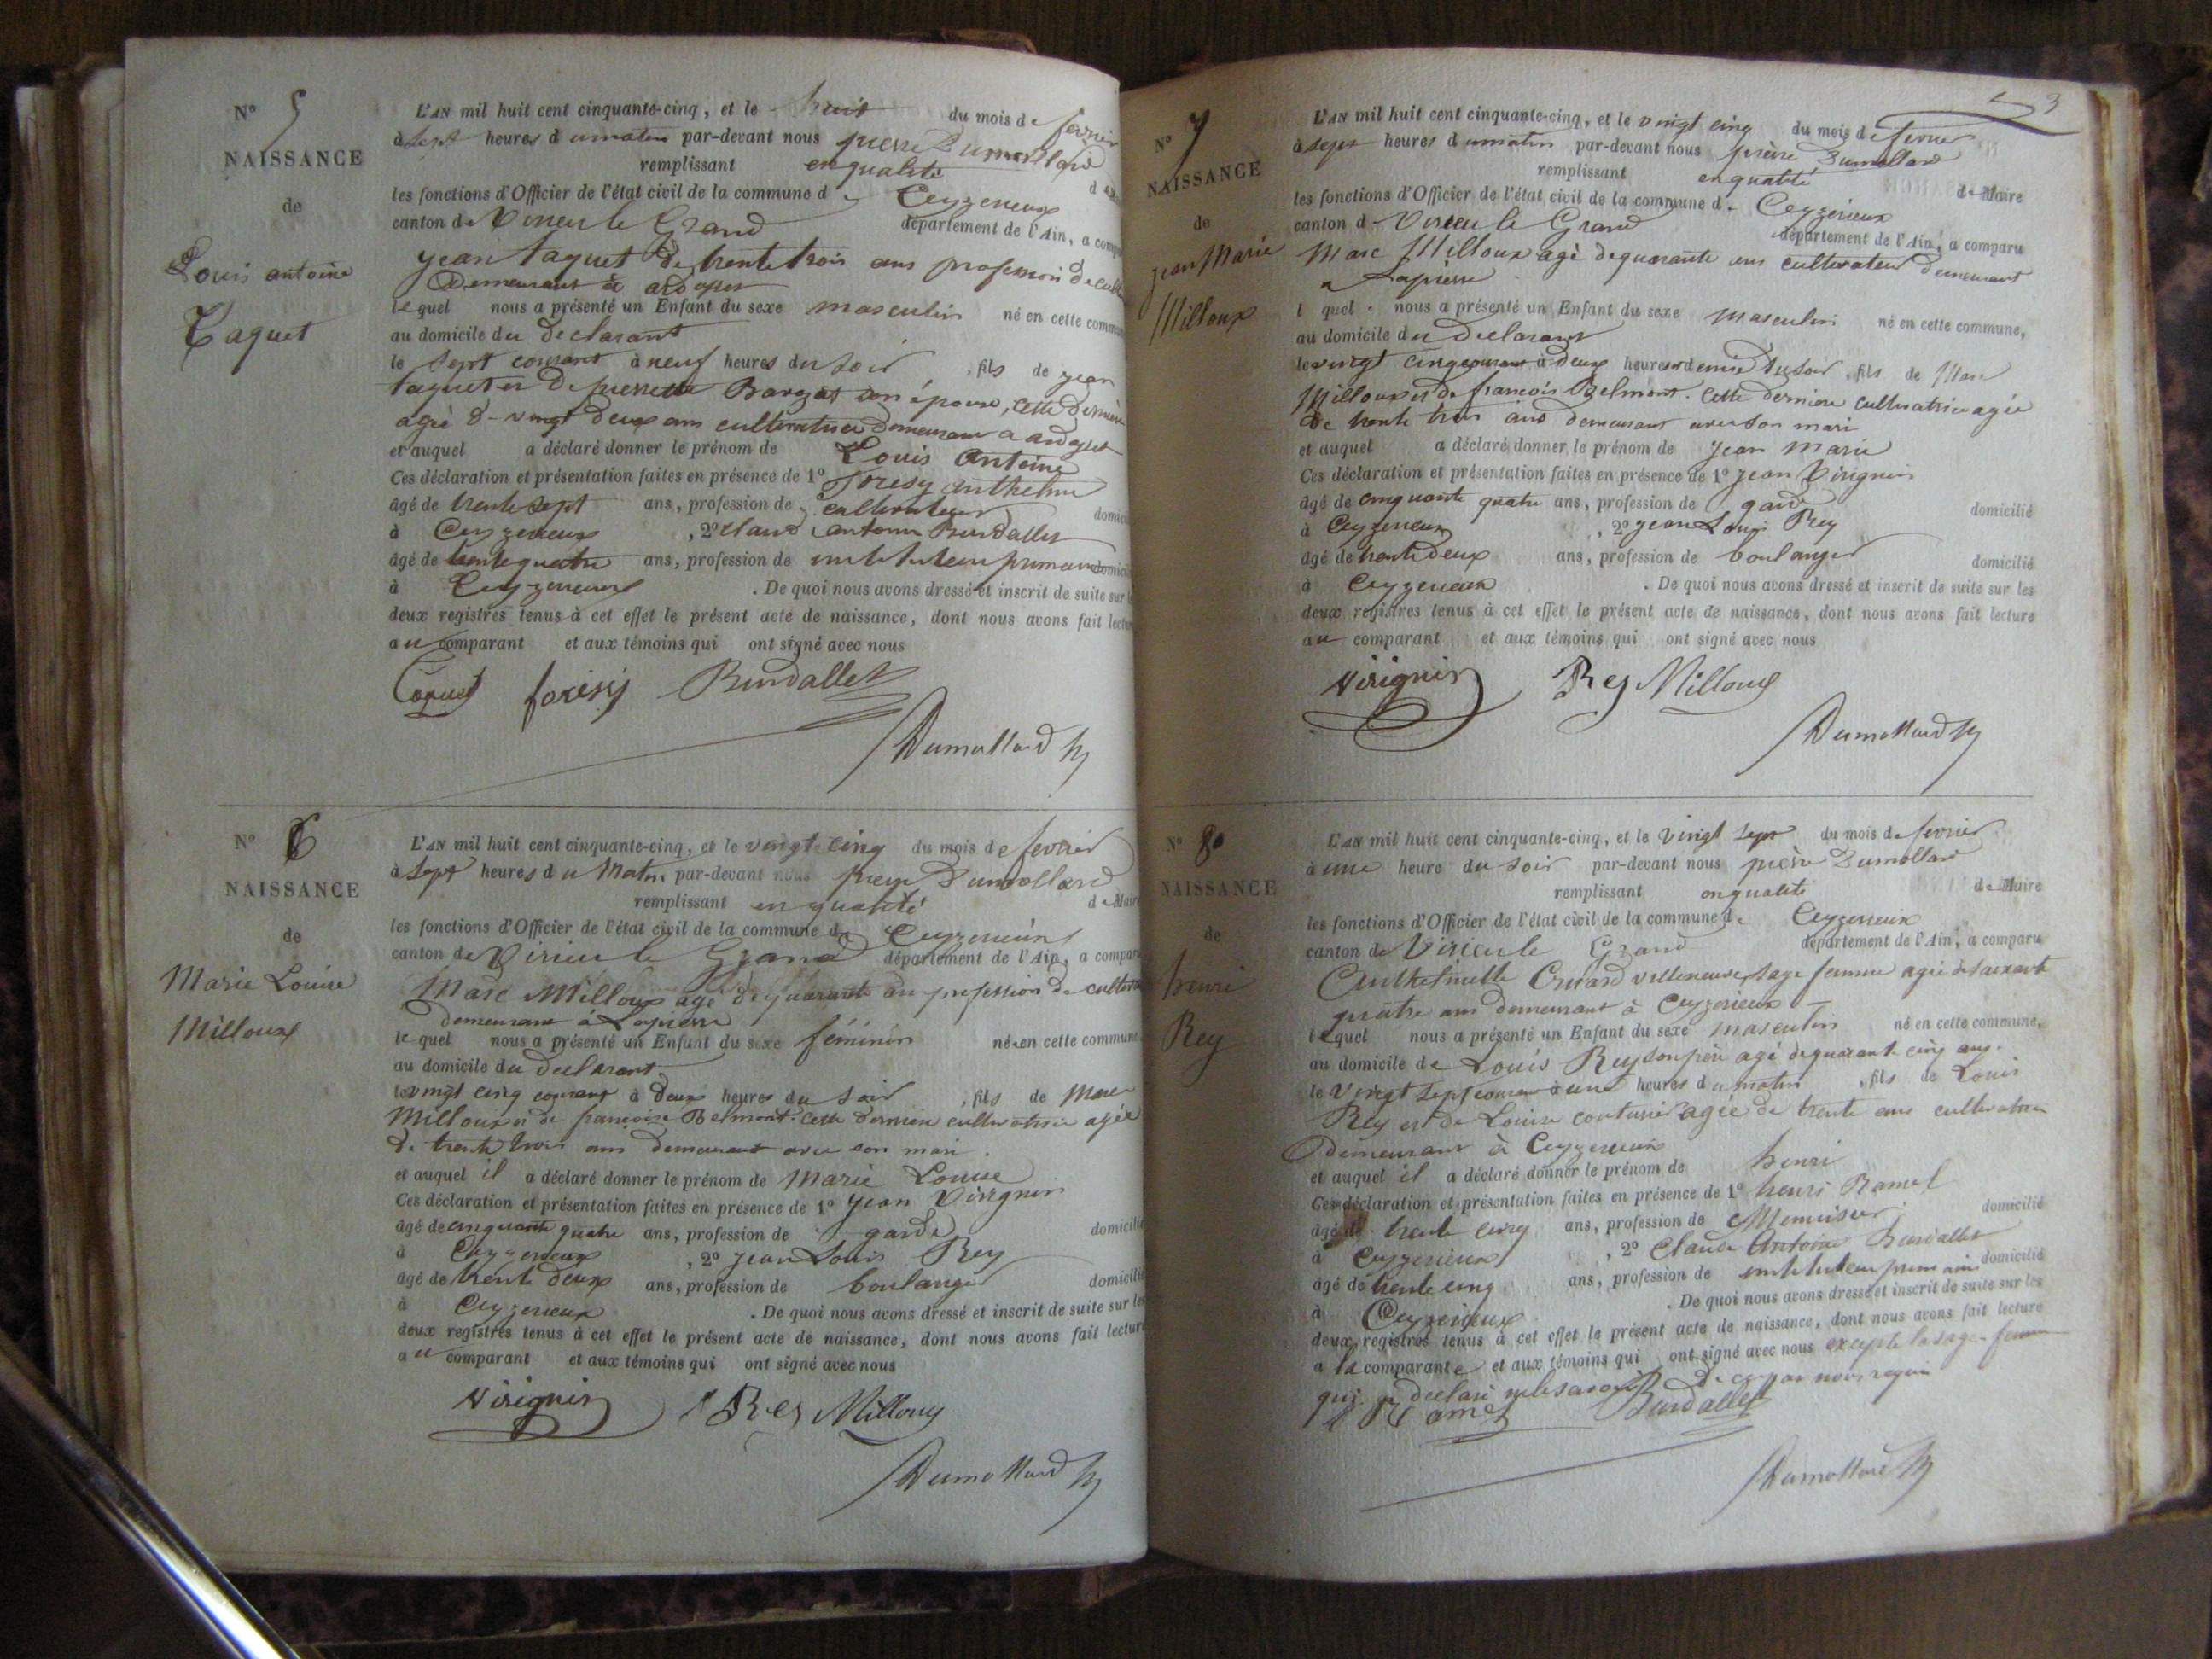 N° 5
NAISSANCE
de
Louis antoine
Taquet
L'AN mil huit cent cinquante-cinq, et le huit du mois de fevrier
à sept heures du matin par-devant nous pierre Dumollard
remplissant en qualité
les fonctions d'Officier de l'état civil de la commune de Ceyzerieux
canton de Virieu le Grand département de l'Ain, a
jean taquet de trente trois ans profession de
Demeurant à
lequel nous a présenté un Enfant du sexe masculin né en cette
au domicile du declarant
le sept courant à neuf heures du soir, fils de jean
taquet et de pierrette son épouse, cette
agée de vingt deux ans cultivatrice demeurant a
et auquel a déclaré donner le prénom de Louis Antoine
Ces déclaration et présentation faites en présence de 1° foresy anthelme
âgé de trente sept ans, profession de cultivateur
à Ceyzerieux, 2° claude antoine Burdallet
âgé de trente quatre ans, profession de instituteur primaire
à Ceyzerieux. De quoi nous avons dressé et inscrit de suite sur
deux registres tenus à cet effet le présent acte de naissance, dont nous avons fait
au comparant et aux témoins qui ont signé avec nous
foresy Burdallet
Dumollard
N° 6
NAISSANCE
de
Marie Louise
Milloux
L'AN mil huit cent cinquante-cinq, et le vingt cinq du mois de fevrier
à sept heures du Matin par-devant nous pierre Dumollard
remplissant en qualité de Maire
les fonctions d'Officier de l'état civil de la commune de Ceyzerieux
canton de Virieu le Grand département de l'Ain, a
Marc Milloux agé de quarante ans profession de
demeurant à Lapierre
lequel nous a présenté un Enfant du sexe féminin né en cette commune
au domicile du declarant
le vingt cinq courant à deux heures du soir, fils de Marc
Milloux et de françoise Belmont. cette derniere cultivatrice agée
de trente trois ans demeurant avec son mari
et auquel il a déclaré donner le prénom de Marie Louise
Ces déclaration et présentation faites en présence de 1° jean Virignin
âgé de cinquante quatre ans, profession de garde domicilié
à Ceyzerieux, 2° jean Louis Rey
âgé de trente deux ans, profession de boulanger domicilié
à Ceyzerieux. De quoi nous avons dressé et inscrit de suite sur les
deux registres tenus à cet effet le présent acte de naissance, dont nous avons fait lecture
au comparant et aux témoins qui ont signé avec nous
Virignin Rey Milloux
Dumollard
3
N° 7
NAISSANCE
de
jean Marie
Milloux
L'AN mil huit cent cinquante-cinq, et le vingt cinq du mois de fevrier
à sept heures du matin par-devant nous pierre Dumollard
remplissant en qualité de Maire
les fonctions d'Officier de l'état civil de la commune de Ceyzerieux
canton de Virieu le Grand département de l'Ain, a comparu
Marc Milloux agé de quarante ans cultivateur demeurant
a Lapierre
l quel nous a présenté un Enfant du sexe masculin né en cette commune,
au domicile du declarant
le vingt cinq courant à deux heures et demie du soir, fils de Marc
Milloux et de françois Belmont. cette derniere cultivatrice agée
de trente trois ans demeurant avec son mari
et auquel a déclaré donner le prénom de jean marie
Ces déclaration et présentation faites en présence de 1° jean Virignin
âgé de cinquante quatre ans, profession de garde domicilié
à Ceyzerieux, 2° jean Louis Rey
âgé de trente deux ans, profession de boulanger domicilié
à Ceyzerieux. De quoi nous avons dressé et inscrit de suite sur les
deux registres tenus à cet effet le présent acte de naissance, dont nous avons fait lecture
au comparant et aux témoins qui ont signé avec nous
Virignin Rey Milloux
Dumollard
N° 8
NAISSANCE
de
henri
Rey
L'AN mil huit cent cinquante-cinq, et le vingt sept du mois de fevrier
à une heure du soir par-devant nous pierre Dumollard
remplissant en qualité de Maire
les fonctions d'Officier de l'état civil de la commune de Ceyzerieux
canton de Virieu le Grand département de l'Ain, a comparu
sage femme agée de soixante
quatre ans demeurant à Ceyzerieux
lequel nous a présenté un Enfant du sexe masculin né en cette commune,
au domicile de Louis Rey son père agé de quarante cinq ans.
le vingt sept courant à une heures du matin, fils de Louis
Rey et de Louise couturier agée de trente ans cultivatrice
Demeurant à Ceyzerieux
et auquel il a déclaré donner le prénom de henri
Ces déclaration et présentation faites en présence de 1° henri Ramel
âgé de trente cinq ans, profession de Menuisier domicilié
à Ceyzerieux, 2° Claude Antoine Burdallet
âgé de trente cinq ans, profession de instituteur primaire domicilié
à Ceyzerieux. De quoi nous avons dressé et inscrit de suite sur les
deux registres tenus à cet effet le présent acte de naissance, dont nous avons fait lecture
a la comparante et aux témoins qui ont signé avec nous excepté la sage-femme
qui a declaré ne le savoir de ce par nous requis
Ramel Burdallet
Dumollard